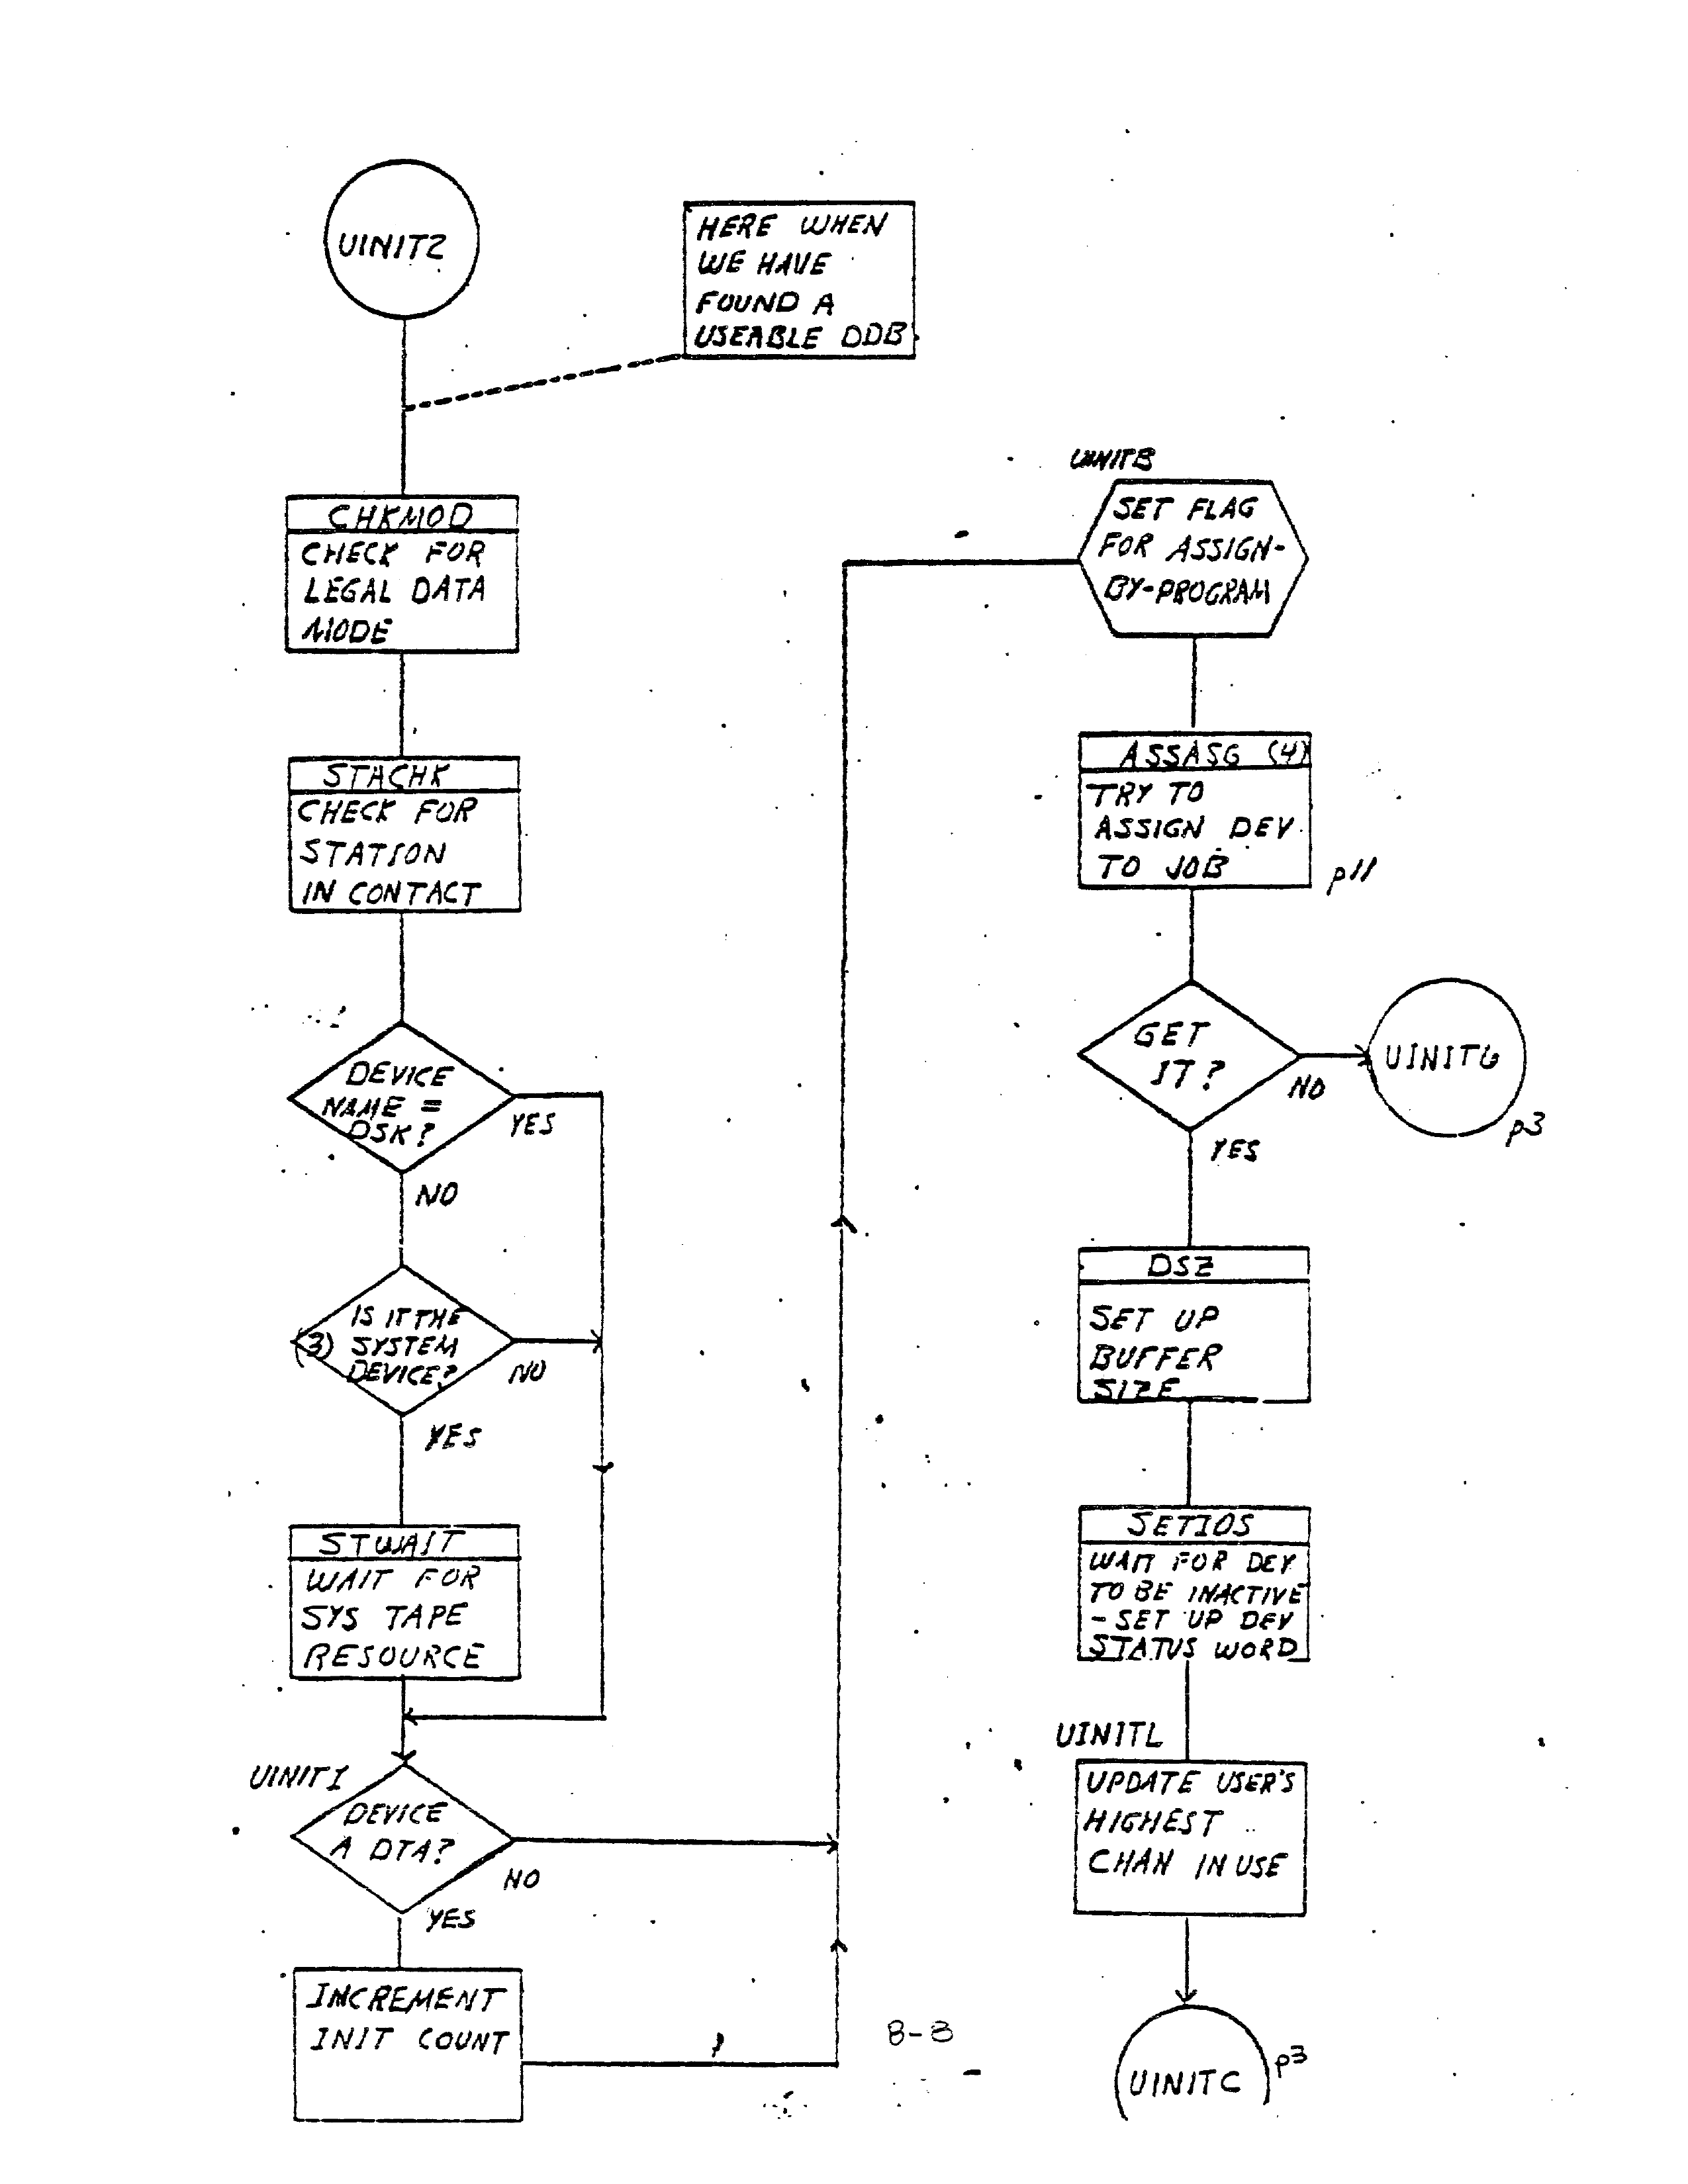 UINITZ
HERE WHEN
WE HAVE
FOUND A
USEABLE DDB
CHKMOD
CHECK FOR
LEGAL DATA
MODE
STACHK
CHECK FOR
STATION
IN CONTACT
DEVICE
NAME =
DSK?
YES
NO
IS IT THE
(3) SYSTEM
DEVICE?
NO
YES
STWAIT
WAIT FOR
SYS TAPE
RESOURCE
UINITI
DEVICE
A DTA?
NO
YES
INCREMENT
INIT COUNT
UINITB
SET FLAG
FOR ASSIGN-
BY-PROGRAM
ASSASG (4)
TRY TO
ASSIGN DEV
TO JOB
p11
GET
IT?
NO
UINITG
p3
YES
DSZ
SET UP
BUFFER
SIZE
SETIOS
WAIT FOR DEV
TO BE INACTIVE
- SET UP DEV
STATUS WORD
UINITL
UPDATE USER'S
HIGHEST
CHAN IN USE
UINITC
p3
8-8